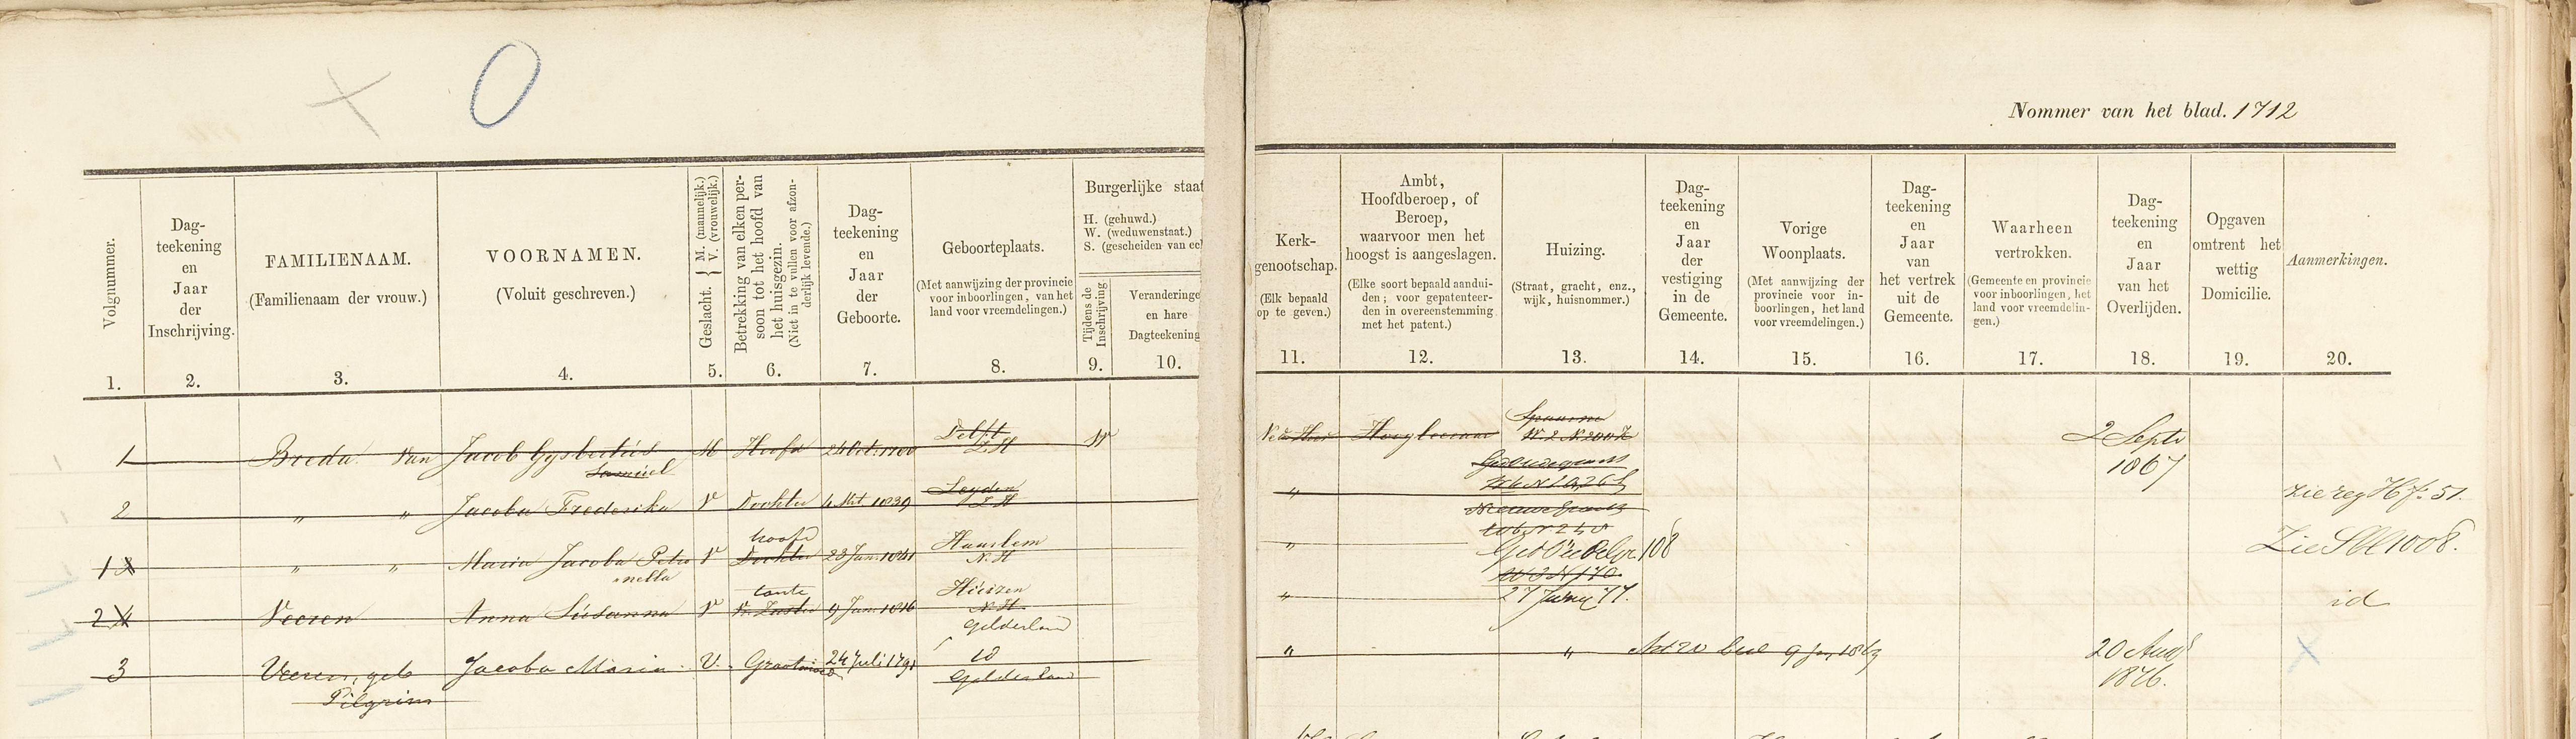 O
Nommer van het blad. 1712
Volgnummer.
1.
Dag-
teekening
en
Jaar
der
Inschrijving.
2.
FAMILIENAAM.
(Familienaam der vrouw.)
3.
VOORNAMEN.
(Voluit geschreven.)
4.
Geslacht. { M. (mannelijk.)
V. (vrouwelijk.)
5.
Betrekking van elken per-
soon tot het hoofd van
het huisgezin.
(Niet in te vullen voor afzon-
derlijk levende.)
6.
Dag-
teekening
en
Jaar
der
Geboorte.
7.
Geboorteplaats.
(Met aanwijzing der provincie
voor inboorlingen, van het
land voor vreemdelingen.)
8.
Burgerlijke staat
H. (gehuwd.)
W. (weduwenstaat.)
S. (gescheiden van ec
Tijdens de
Inschrijving
9.
Verandering
en hare
Dagteekening
10.
Kerk-
genootschap.
(Elk bepaald
op te geven.)
11.
Ambt,
Hoofdberoep, of
Beroep,
waarvoor men het
hoogst is aangeslagen.
(Elke soort bepaald aandui-
den; voor gepatenteer-
den in overeenstemming
met het patent.)
12.
Huizing.
(Straat, gracht, enz.,
wijk, huisnommer.)
13.
Dag-
teekening
en
Jaar
der
vestiging
in de
Gemeente.
14.
Vorige
Woonplaats.
(Met aanwijzing der
provincie voor in-
boorlingen, het land
voor vreemdelingen.)
15.
Dag-
teekening
en
Jaar
van
het vertrek
uit de
Gemeente.
16.
Waarheen
vertrokken.
(Gemeente en provincie
voor inboorlingen, het
land voor vreemdelin-
gen.)
17.
Dag-
teekening
en
Jaar
van het
Overlijden.
18.
Opgaven
omtrent het
wettig
Domicilie.
19.
Aanmerkingen.
20.
1 Breda van Jacob Gysbertus M Hoofd 24 Oct 1788 Delft W Hoogleeraar Spaarne 2 Septr
Samuel Z.H 1867
2 " " Jacoba Frederika V Dochter 1839 Leyden " zie reg H fo 51.
Z H
hoofd
1 " " Maria Jacoba Petro V Dochter 23 Jan 1841 Haarlem " 108 Zie S bl 1008.
nella N.H
tante
2 Veeren Anna Susanna V 9 Jan 1816 Huissen " 27 Juny 77. id
N.H.
Gelderland
3 Veeren, geb Jacoba Maria V. Grootmoed 24 Juli 1791 id " " 9 Jan 1869 20 Aug
Pilgrim Gelderland 1876.